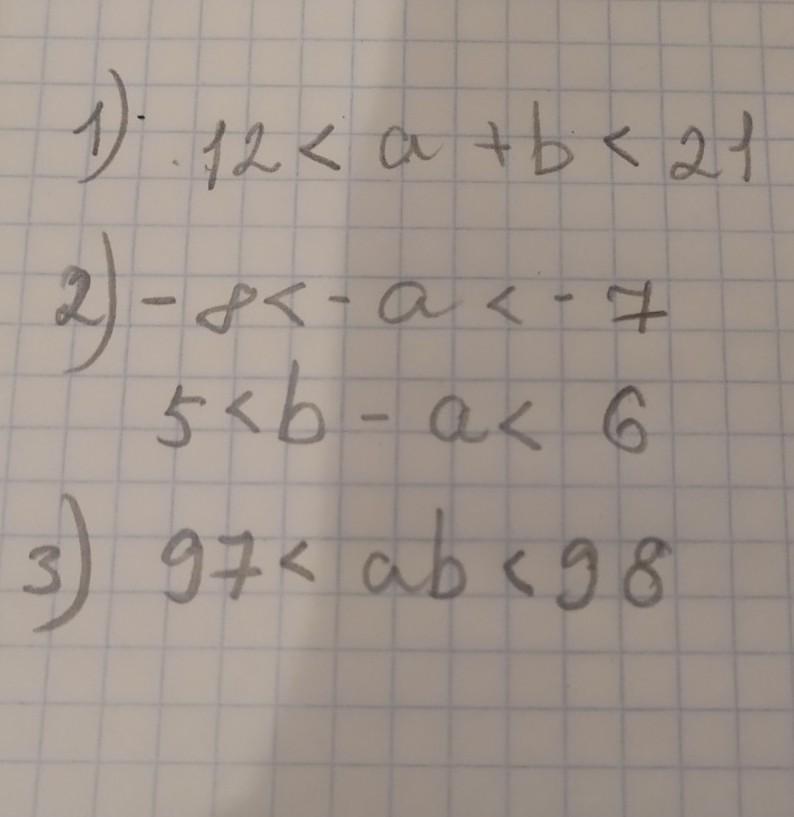 1) 12 < a + b < 21
2) - 8 < - a < - 7
5 < b - a < 6
3) 97 < ab < 98